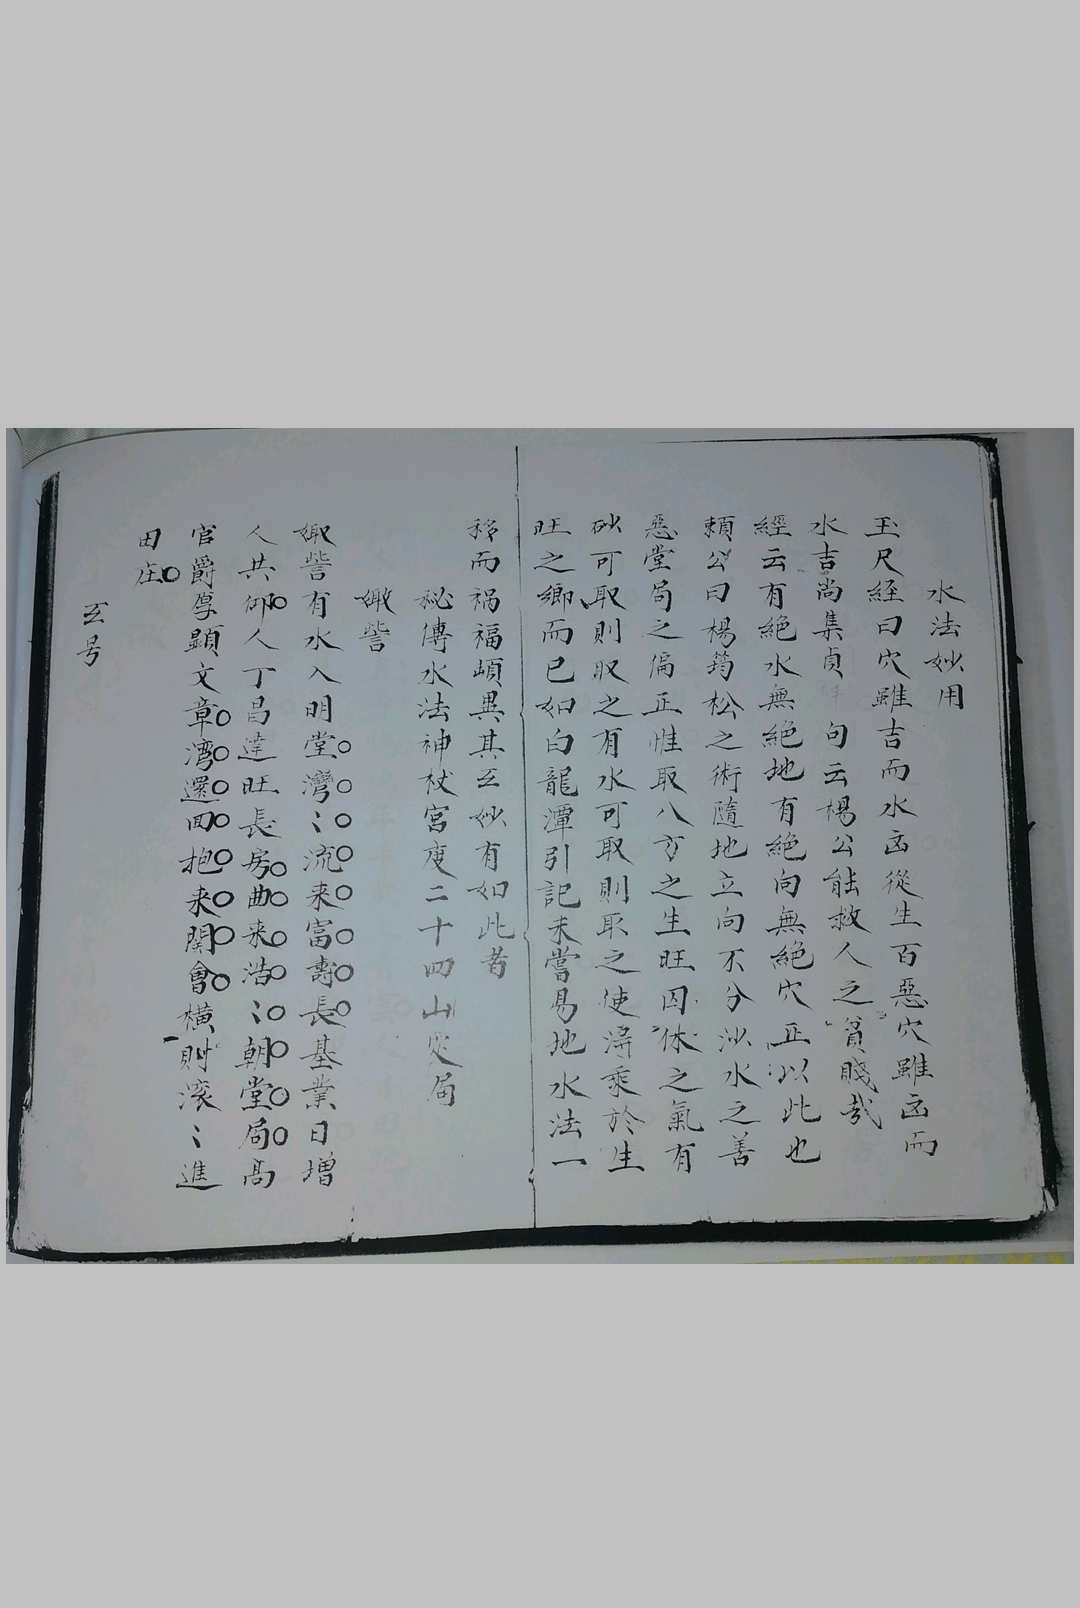 水法妙用
玉尺経曰穴雖吉而水凶從生百惡穴雖凶而
水吉尚集貞 句云楊公能救人之貧賤哉
經云有絶水無絕地有絕向無絕穴正以此也
頼公曰楊筠松之術隨地立向不分沙水之善
惡堂局之偏正惟取八方之生旺囚休之氣有
砂可取則取之有水可取則取之使得乘於生
旺之鄉而已如白龍潭引記未嘗易地水法一
移而禍福頓異其玄妙有如此者
秘傳水法神杖宮度二十四山定局
娵訾
娵訾有水入明堂灣〻流来富壽長基業日增
人共仰人丁昌達旺長房曲来浩〻朝堂局高
官爵厚顕文章湾還回抱来関會横則滚〻進
田庄
玄号